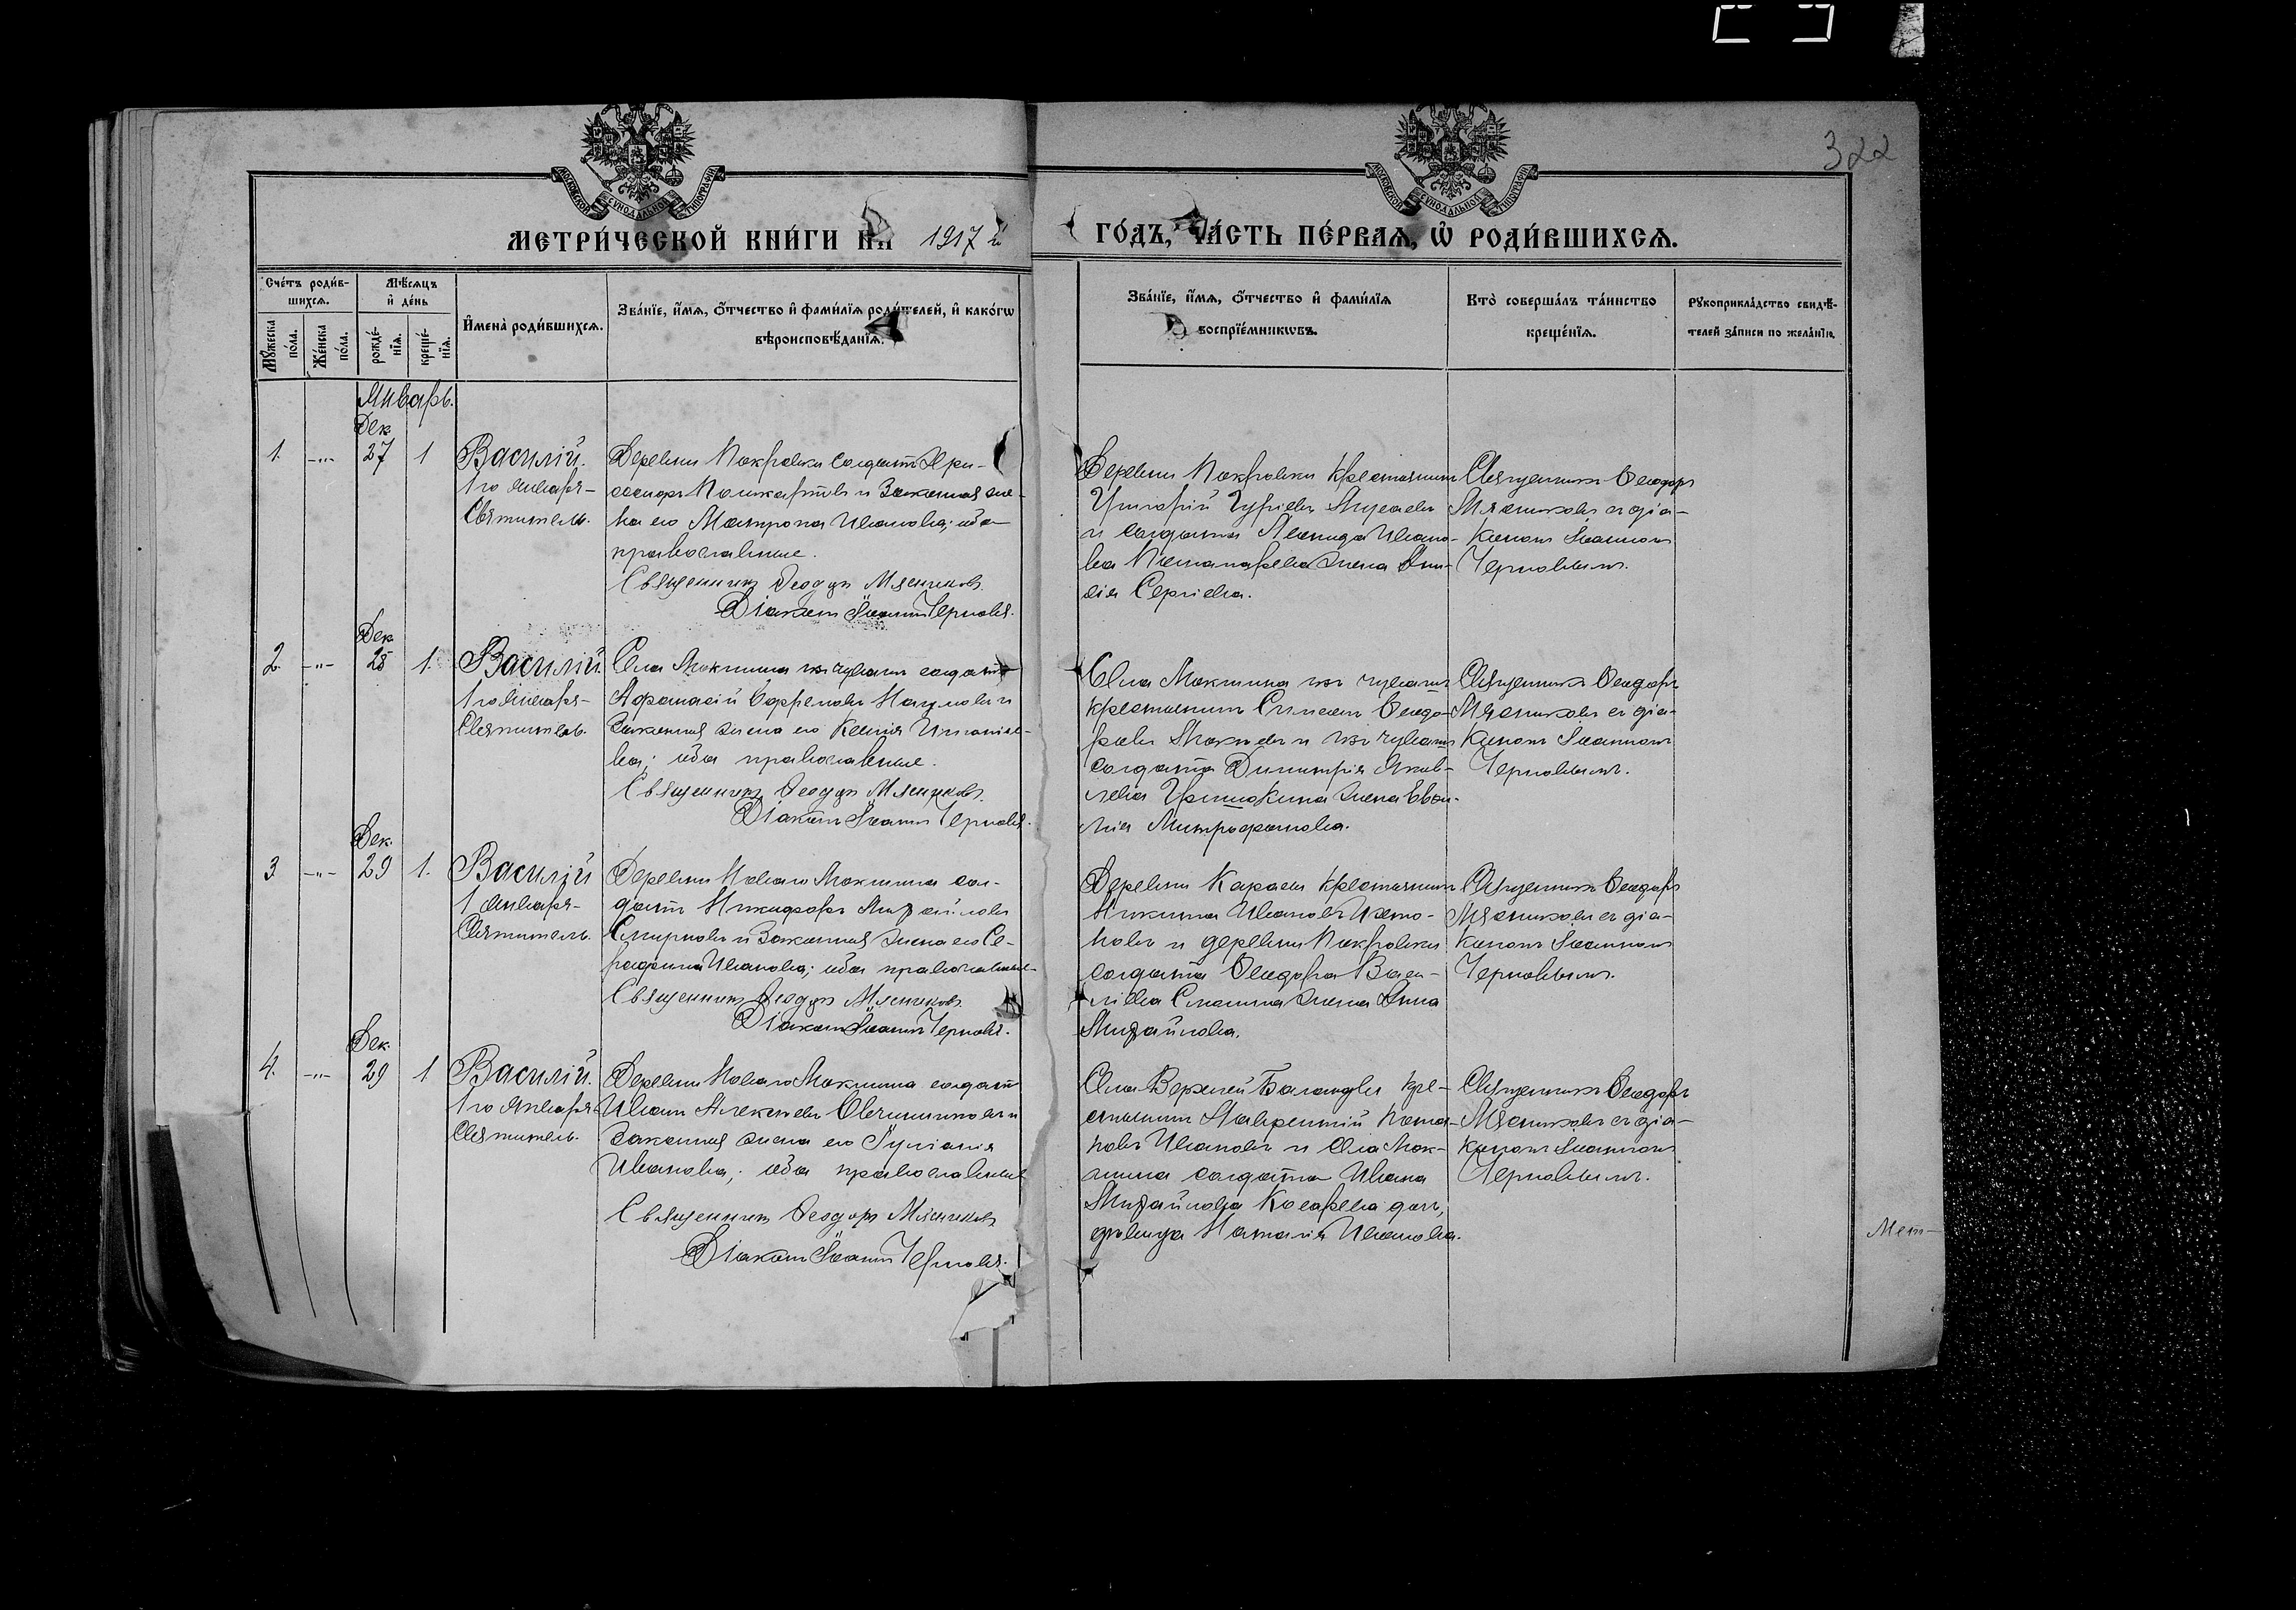 322
МОСКОВСКОЙ СѴНОДАЛЬНОЙ ТИПОГРАФІИ
МОСКОВСКОЙ СѴНОДАЛЬНОЙ ТИПОГРАФІИ
МЕТРИ́ЧЕСКОЙ КНИ́ГИ НА 1917 й
ГО́ДЪ, ЧА́СТЬ ПЕ́РВАЯ, Ѡ҆ РОДИ́ВШИХСЯ.
Сче́тъ роди́вшихся.
Мꙋ́жеска по́ла.
Же́нска по́ла.
Мѣ́сяцъ и҆ де́нь
рожде́нїя.
креще́нїя.
И҆мена̀ роди́вшихся.
Зва́нїе, и҆́мя, ѻ҆́тчество и҆ фами́лїя роди́телей, и҆ како́гѡ
вѣроисповѣ́данїя.
Зва́нїе, и҆́мя, ѻ҆́тчество и҆ фами́лїя
воспрїе́мникѡвъ.
Кто̀ соверша́лъ та́инство
креще́нїя.
Рꙋкоприкла́дство свидѣ́-
телей за́писи по жела́нїю.
Январь.
Дек
1. -"- 27 1 Василій.
1го Января-
Святитель.
Деревни Покровки солдатъ
и Законная же-
на его Матрона Иванова; оба
православные.
Священникъ Ѳеодоръ Мясниковъ.
Діаконъ Іоаннъ Черновъ.
Деревни Покровки крестьянинъ
Григорій Гурьевъ
и солдата Леонида Ивано-
ва жена Ани-
сія Сергіева.
Священникъ Ѳеодоръ
Мясниковъ съ діа-
кономъ Іоанномъ
Черновымъ.
Дек
2. -"- 28 1. Василій.
1го Января-
Святитель.
Села Мокшина изъ чувашъ солдатъ
Афанасій Ефремовъ Наумовъ и
Законная жена его Ксенія Игнатіе-
ва; оба православные.
Священникъ Ѳеодоръ Мясниковъ.
Діаконъ Іоаннъ Черновъ.
Села Мокшина изъ чувашъ
крестьянинъ Симеонъ Ѳеодо-
ровъ Мокѣевъ и изъ чувашъ
солдата Димитрія Яков-
лева Гришкина жена Евѳи-
мія Митрофанова.
Священникъ Ѳеодоръ
Мясниковъ съ діа-
кономъ Іоанномъ
Черновымъ.
Дек.
3. -"- 29 1. Василій
1 Января-
Святитель.
Деревни Новаго Мокшина сол-
датъ Никифоръ Михайловъ
Смирновъ и Законная жена его Се-
рафима Иванова; оба православные
Священникъ Ѳеодоръ Мясниковъ.
Діаконъ Іоаннъ Черновъ.
Деревни Караевы крестьянинъ
Никита Ивановъ
и деревни Покровки
солдата Ѳеодора Васи-
ліева жена Анна
Михайлова.
Священникъ Ѳеодоръ
Мясниковъ съ діа-
кономъ Іоанномъ
Черновымъ.
Дек.
4. -"- 29 1 Василій.
1го Января
Святитель.
Деревни Новаго Мокшина солдатъ
Иванъ Алексѣевъ Овчинниковъ и
Законная жена его Іуліанія
Иванова; оба православные
Священникъ Ѳеодоръ Мясниковъ
Діаконъ Іоаннъ Черновъ.
Села Верхней Баландвы кре-
стьянинъ Лаврентій Пота-
повъ Ивановъ и Села Мок-
шина солдата Ивана
Михайлова Косарева дочь,
дѣвица Наталія Иванова.
Священникъ Ѳеодоръ
Мясниковъ съ діа-
кономъ Іоанномъ
Черновымъ.
Мет-